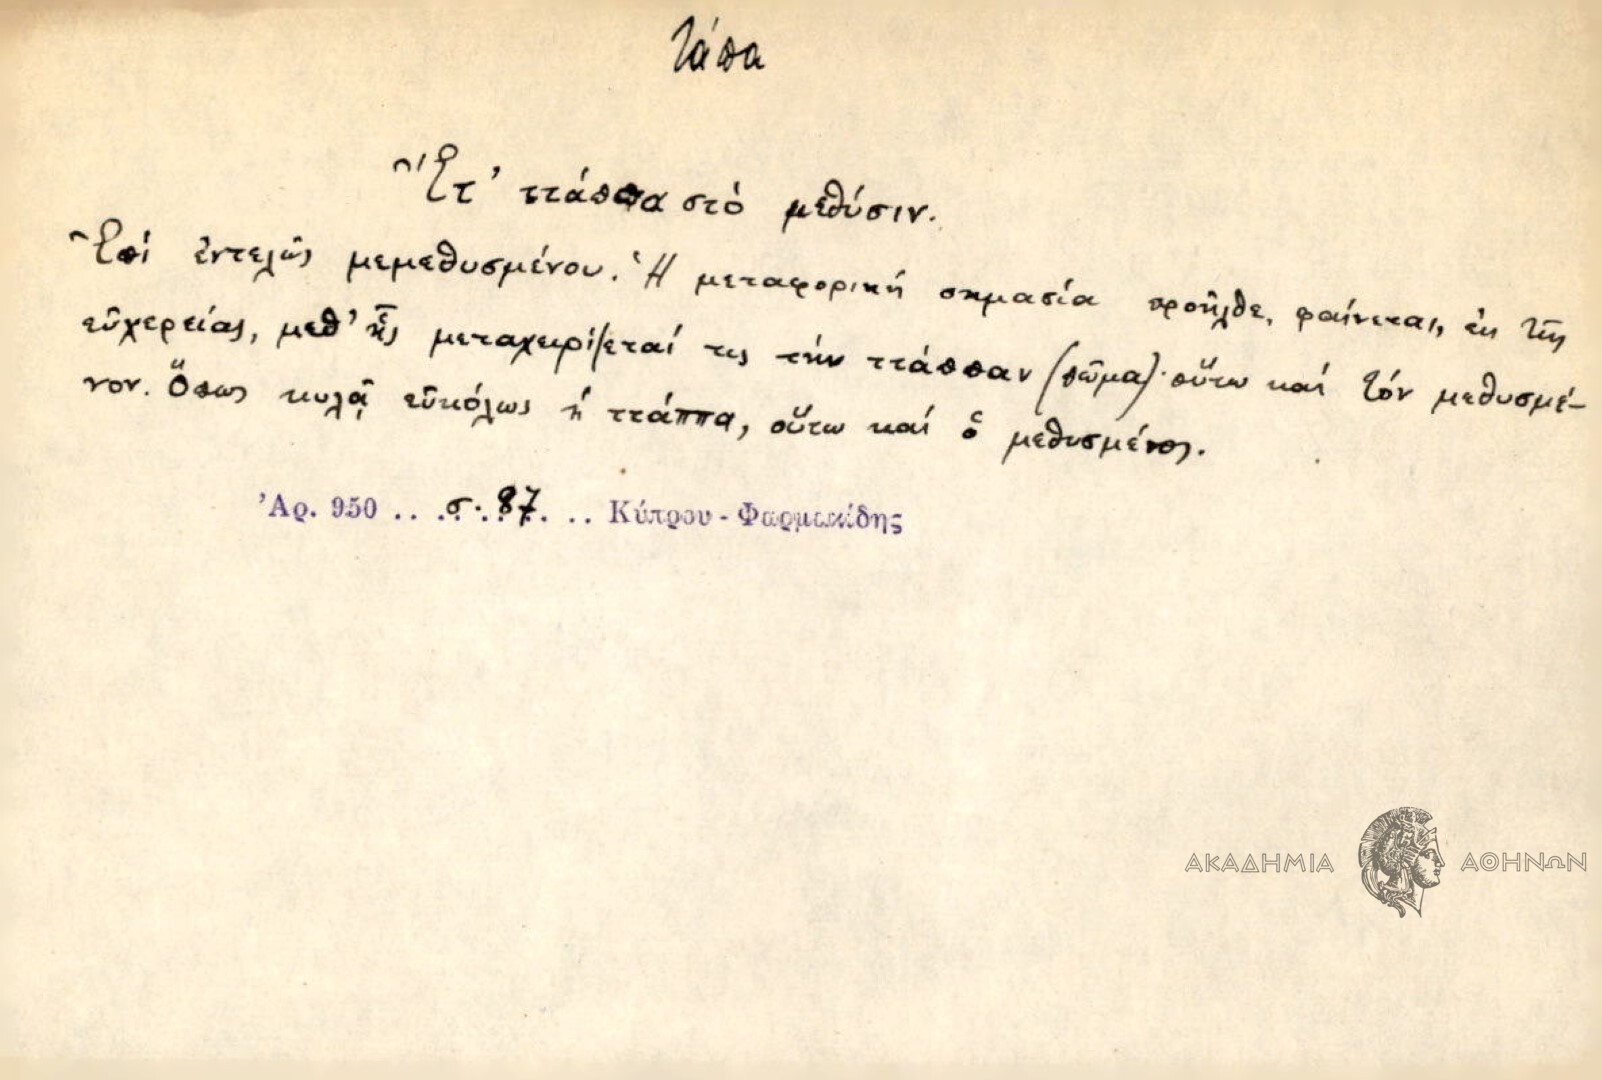 τάπα
Ἔτ' ττάππα στὸ μεθύσιν.
Ἐπί ἐντελῶς μεμεθυσμένου. Ἡ μεταφορική σημασία προῆλθε, φαίνεται, ἐκ τῆς
εὐχερείας, μεθ' ἧς μεταχειρίζεταί τις τήν ττάππαν (πῶμα)· οὕτω καί τόν μεθυσμέ-
νον. Ὅπως κυλᾷ εὐκόλως ἡ ττάππα, οὕτω καί ὁ μεθυσμένος.
Ἀρ. 950 .. σ. 87 .. Κύπρου - Φαρμακίδης
ΑΚΑΔΗΜΙΑ ΑΘΗΝΩΝ